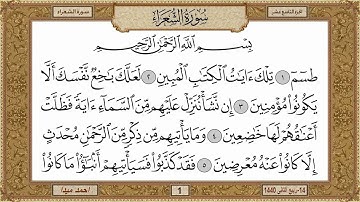 الجزء التاسع عشر
سُورَةُ الشُّعَرَاءِ
سورة الشعراء
بِسْمِ اللَّهِ الرَّحْمَٰنِ الرَّحِيمِ
طسٓمٓ ١ تِلْكَ ءَايَٰتُ ٱلْكِتَٰبِ ٱلْمُبِينِ ٢ لَعَلَّكَ بَٰخِعٌ نَّفْسَكَ أَلَّا
يَكُونُوا۟ مُؤْمِنِينَ ٣ إِن نَّشَأْ نُنَزِّلْ عَلَيْهِم مِّنَ ٱلسَّمَآءِ ءَايَةً فَظَلَّتْ
أَعْنَٰقُهُمْ لَهَا خَٰضِعِينَ ٤ وَمَا يَأْتِيهِم مِّن ذِكْرٍ مِّنَ ٱلرَّحْمَٰنِ مُحْدَثٍ
إِلَّا كَانُوا۟ عَنْهُ مُعْرِضِينَ ٥ فَقَدْ كَذَّبُوا۟ فَسَيَأْتِيهِمْ أَنۢبَٰٓؤُا۟ مَا كَانُوا۟
14- ربيع الثاني 1440
1
احمد عيدا